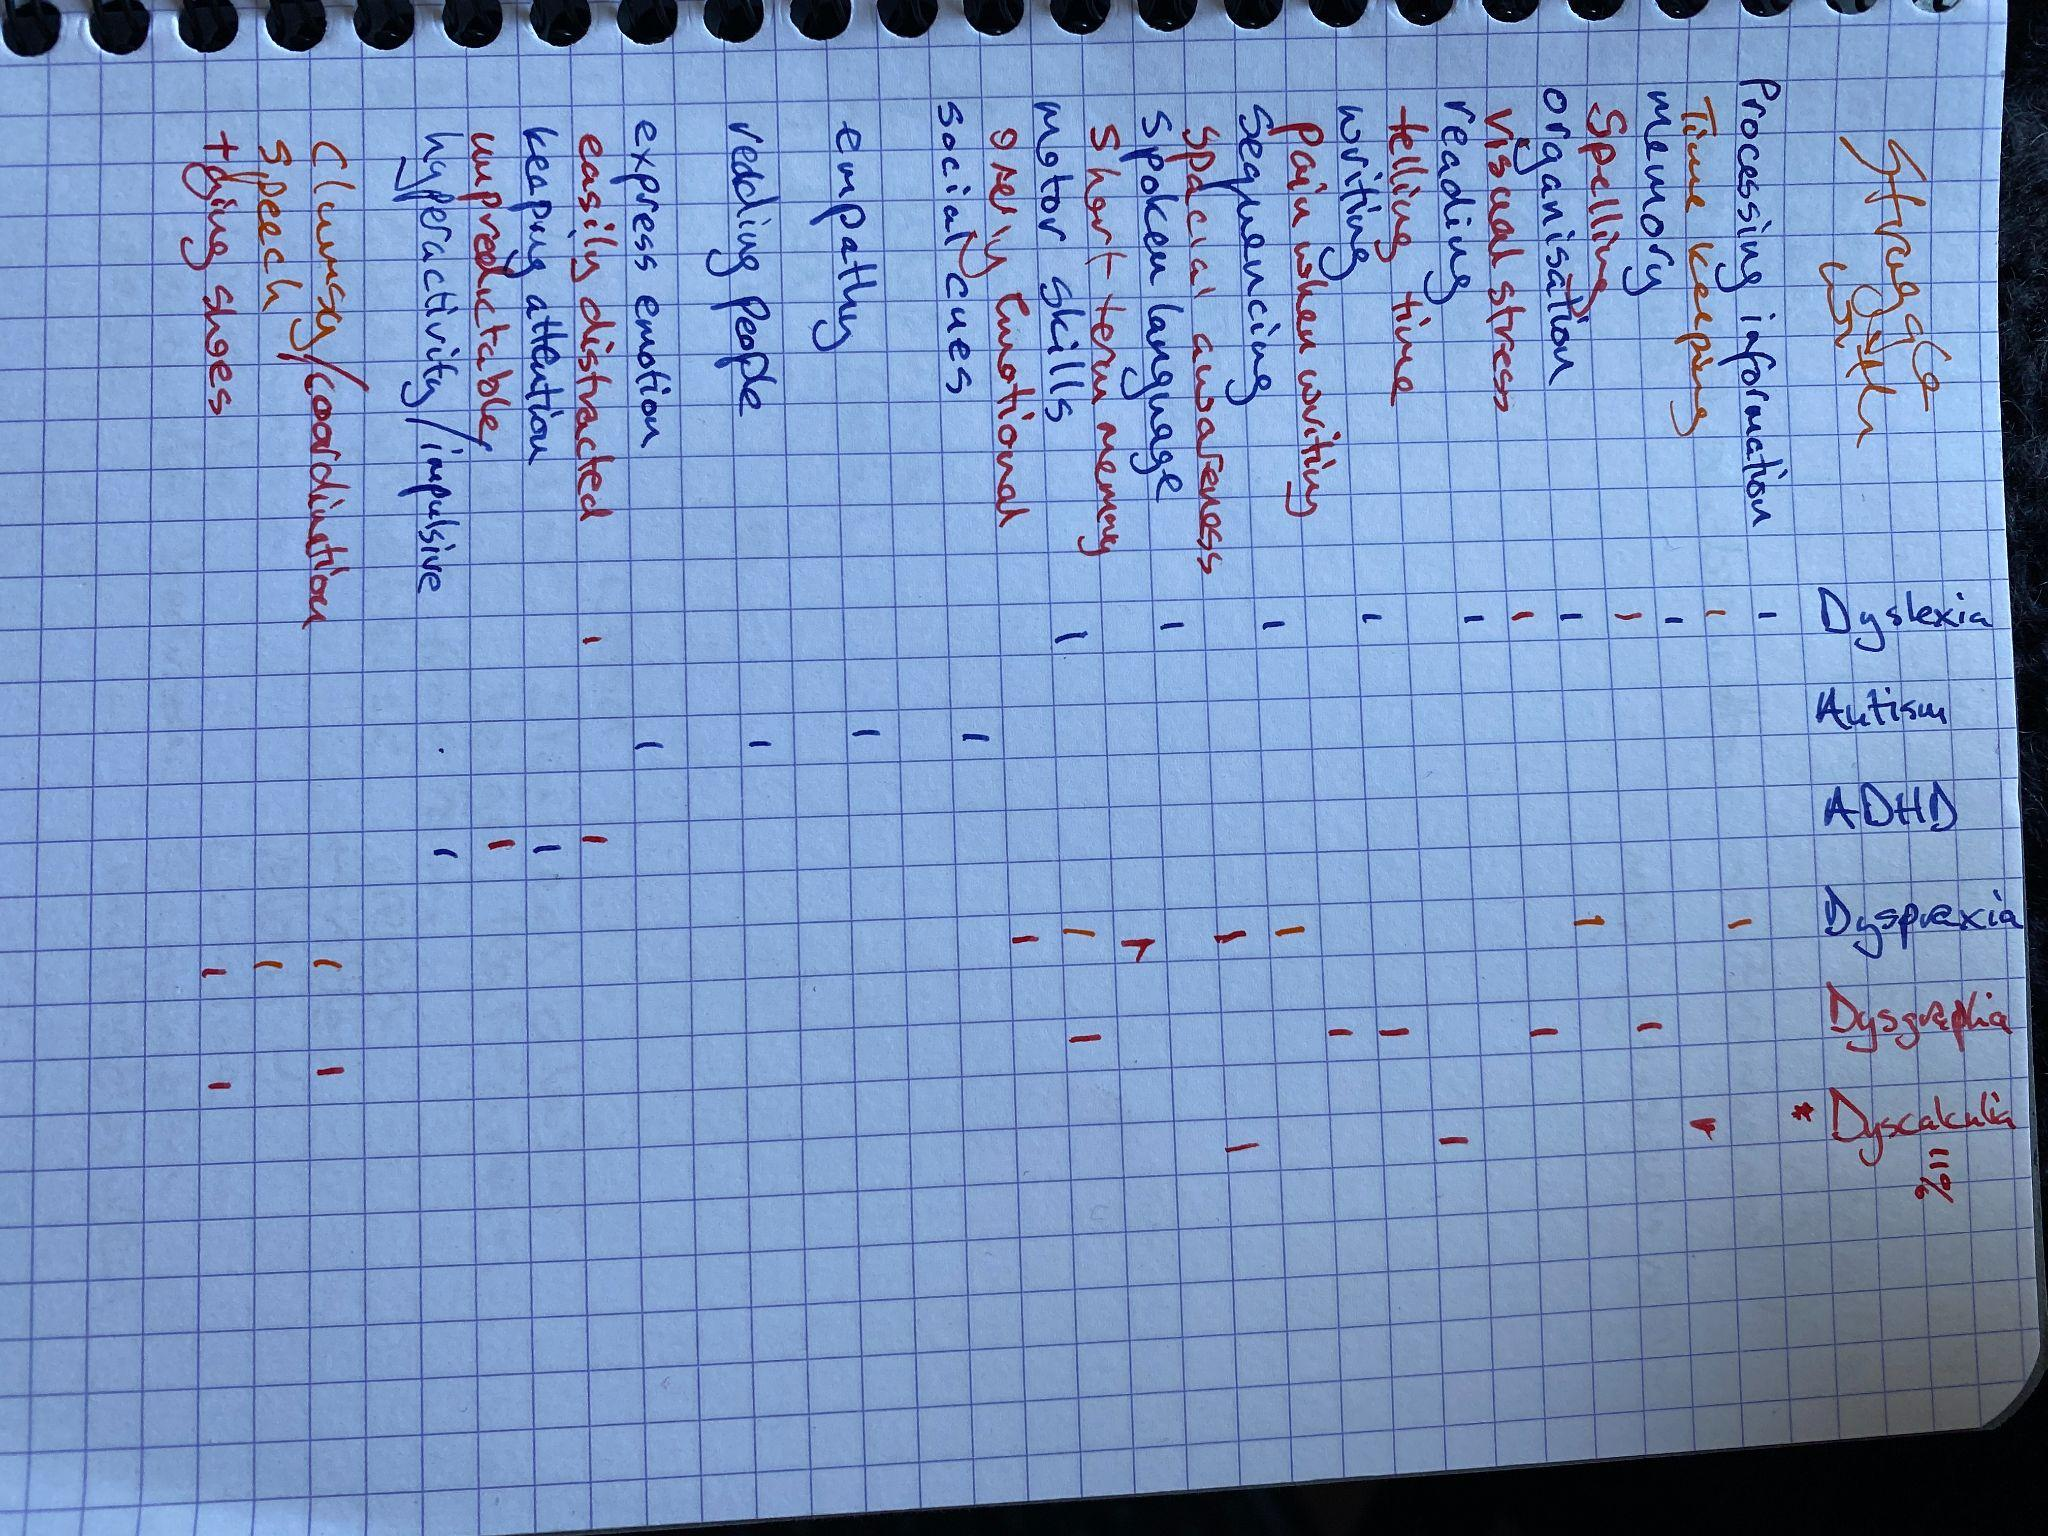 Struggle with
Dyslexia Autism ADHD Dyspraxia Dysgraphia * Dyscalculia
11%
Processing information - -
Time keeping - -
memory - -
Spelling - -
organisation - -
visual stress -
reading - -
telling time -
writing - -
Pain when writing -
Sequencing - -
Spacial awareness -
Spoken language -
Short term memory
motor skills - - -
Emotional -
social cues -
empathy -
reading People -
express emotion -
easily distracted - -
keeping attention -
unpredictable -
hyperactivity/impulsive -
Clumsy/coordination - -
Speech -
shoes - -